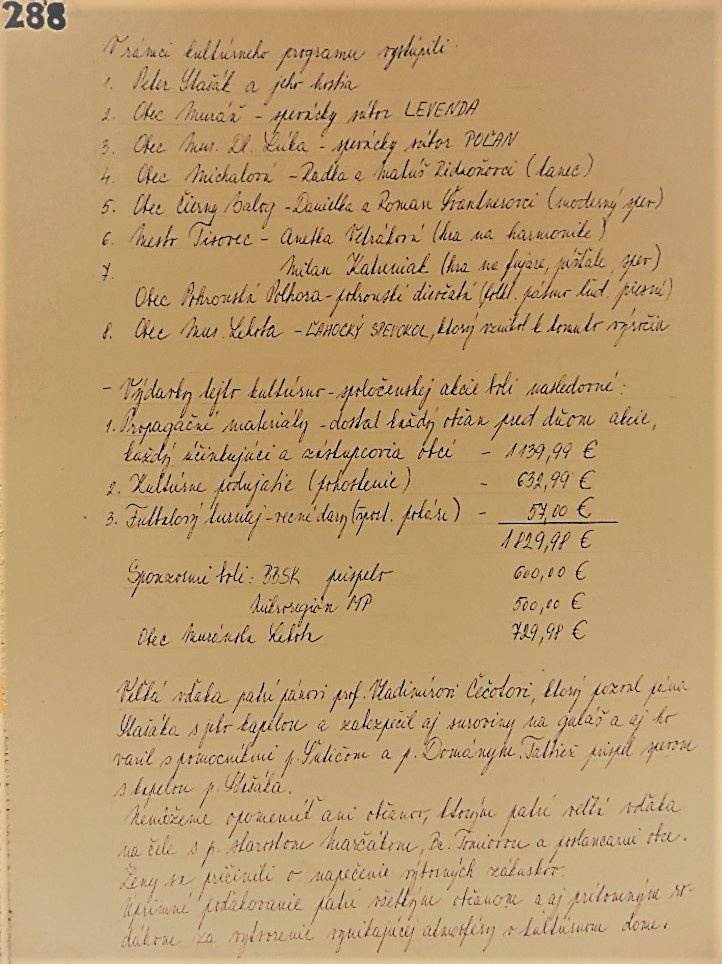 288
V rámci kultúrneho programu vystúpili:
1. Peter Stašák a jeho hostia
2. Obec Muráň - spevácky súbor LEVENDA
3. Obec Mur. Dl. Lúka - spevácky súbor POĽAN
4. Obec Michalová - Radka a Matúš (tanec)
5. Obec Čierny Balog - Danielka a Roman Švantnerovci (moderný spev)
6. Mesto Tisovec - Anetka Vetráková (hra na harmonike)
7. Milan Katuniak (hra na fujare, píšťale, spev)
Obec Pohronská Polhora - pohronské dievčatá (folkl. pásmo ľud. piesní)
8. Obec Mur. Lehota - ĽAHOCKÝ SPEVOKOL, ktorý vznikol k tomuto výročiu
- Výdavky tejto kultúrno-spoločenskej akcie boli nasledovné:
1. Propagačné materiály - dostal každý občan pred dňom akcie,
každý účinkujúci a zástupcovia obcí - 1139,99 €
2. Kultúrne podujatie (pohostenie) - 632,99 €
3. Futbalový turnaj - vecné dary (šport. poháre) - 57,00 €
1829,98 €
Sponzormi boli: BBSK prispelo 600,00 €
Mikroregión MP 500,00 €
Obec Muránska Lehota 729,98 €
Veľká vďaka patrí pánovi prof. Vladimírovi Čečotovi, ktorý pozval pána
Stašáka s jeho kapelou a zabezpečil aj suroviny na guláš a aj ho
varil s pomocníkmi p. a p. Dományim. Taktiež prispel spevom
s kapelou p. Stašáka.
Nemôžeme opomenúť ani občanov, ktorým patrí veľká vďaka
na čele s p. starostom Marčákom, Bc. Tomiovou a poslancami obce.
Ženy sa pričinili o napečenie výborných zákuskov.
Úprimné poďakovanie patrí všetkým občanom a aj prítomným ro-
dákom za vytvorenie vynikajúcej atmosféry v kultúrnom dome.